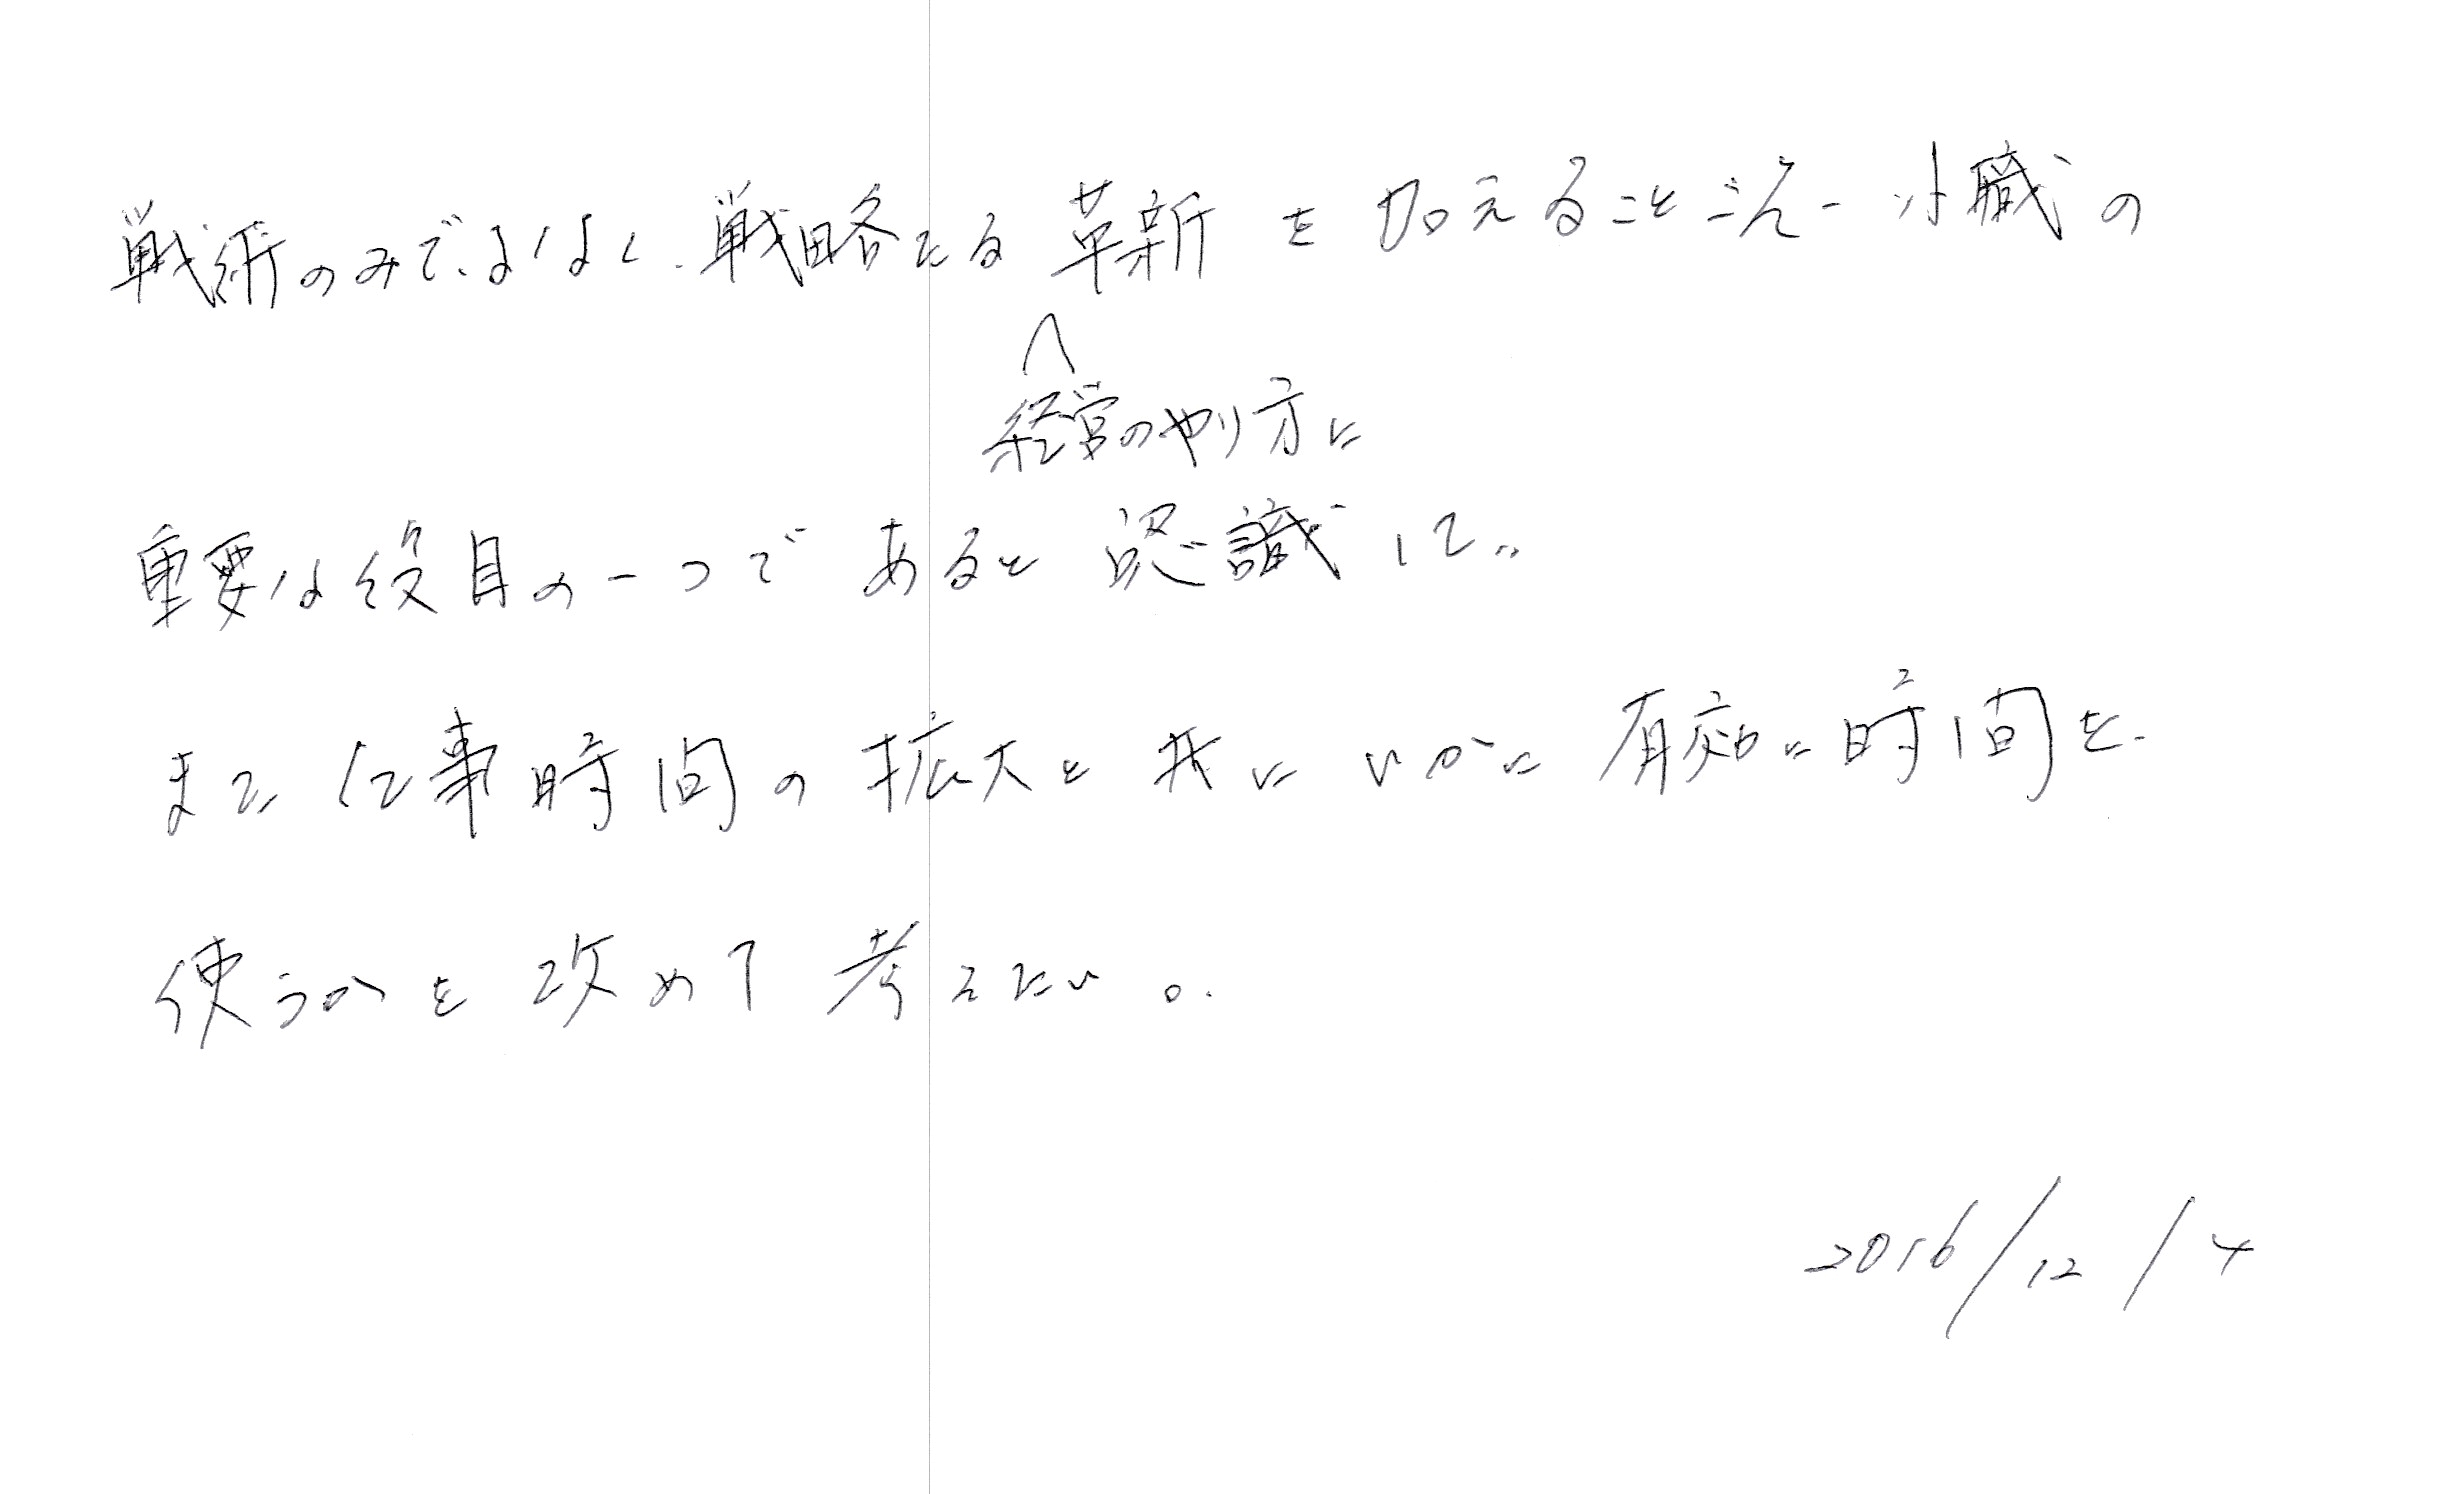 戦術のみではなく、戦略たる革新を加えることこそ、小職の
経営のやり方に
重要な役目の一つであると認識した。
また、仕事時間の拡大と共に いかに有効に時間を、
使うかを改めて考えたい。
2016/12/4